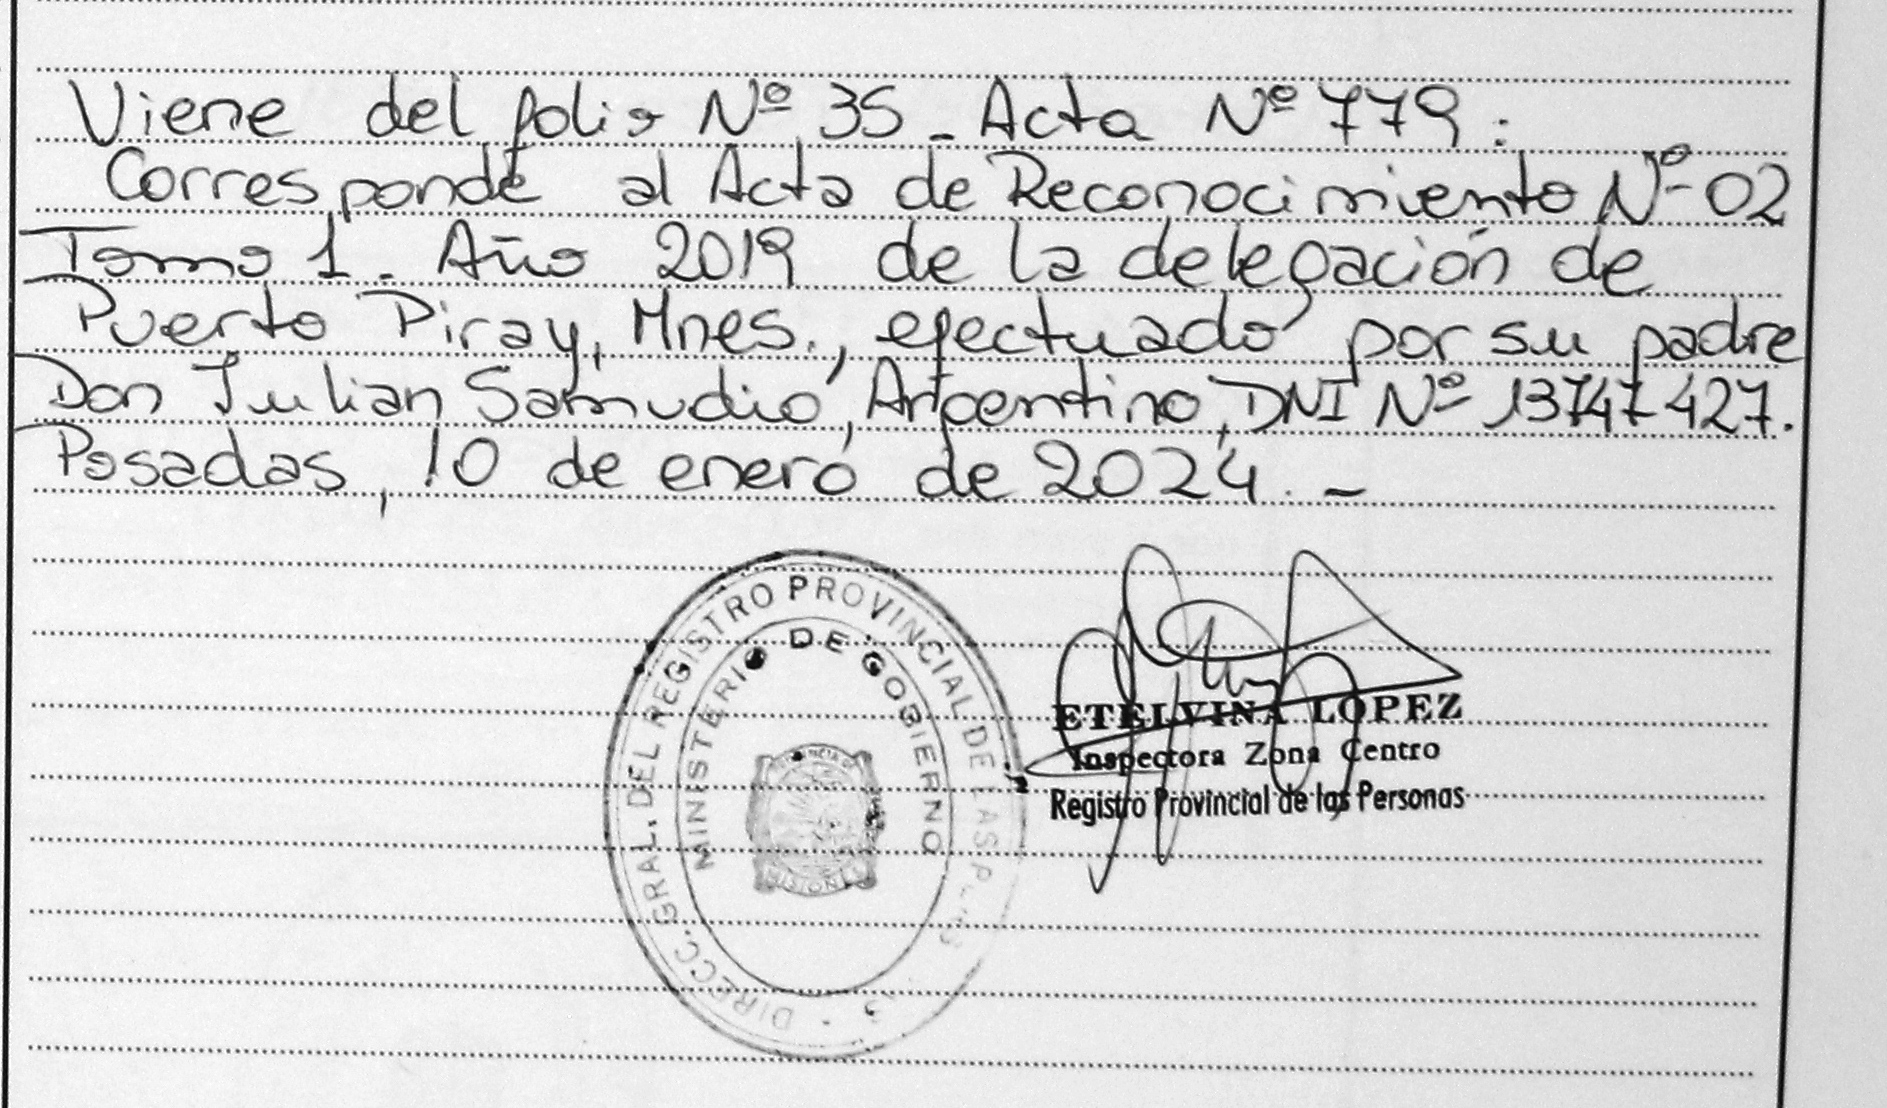 Viene del folio Nº 35 - Acta Nº 779:
Corresponde al Acta de Reconocimiento Nº 02
Tomo 1. Año 2019 de la delegación de
Puerto Piray, Mnes., efectuado por su padre
Don Julian Samudio, Argentino, DNI Nº 13747427.
Posadas, 10 de enero de 2024. -
DIRECC. GRAL. DEL REGISTRO PROVINCIAL DE LAS
MINISTERIO DE GOBIERNO
MISIONES
ETELVINA LOPEZ
Inspectora Zona Centro
Registro Provincial de las Personas